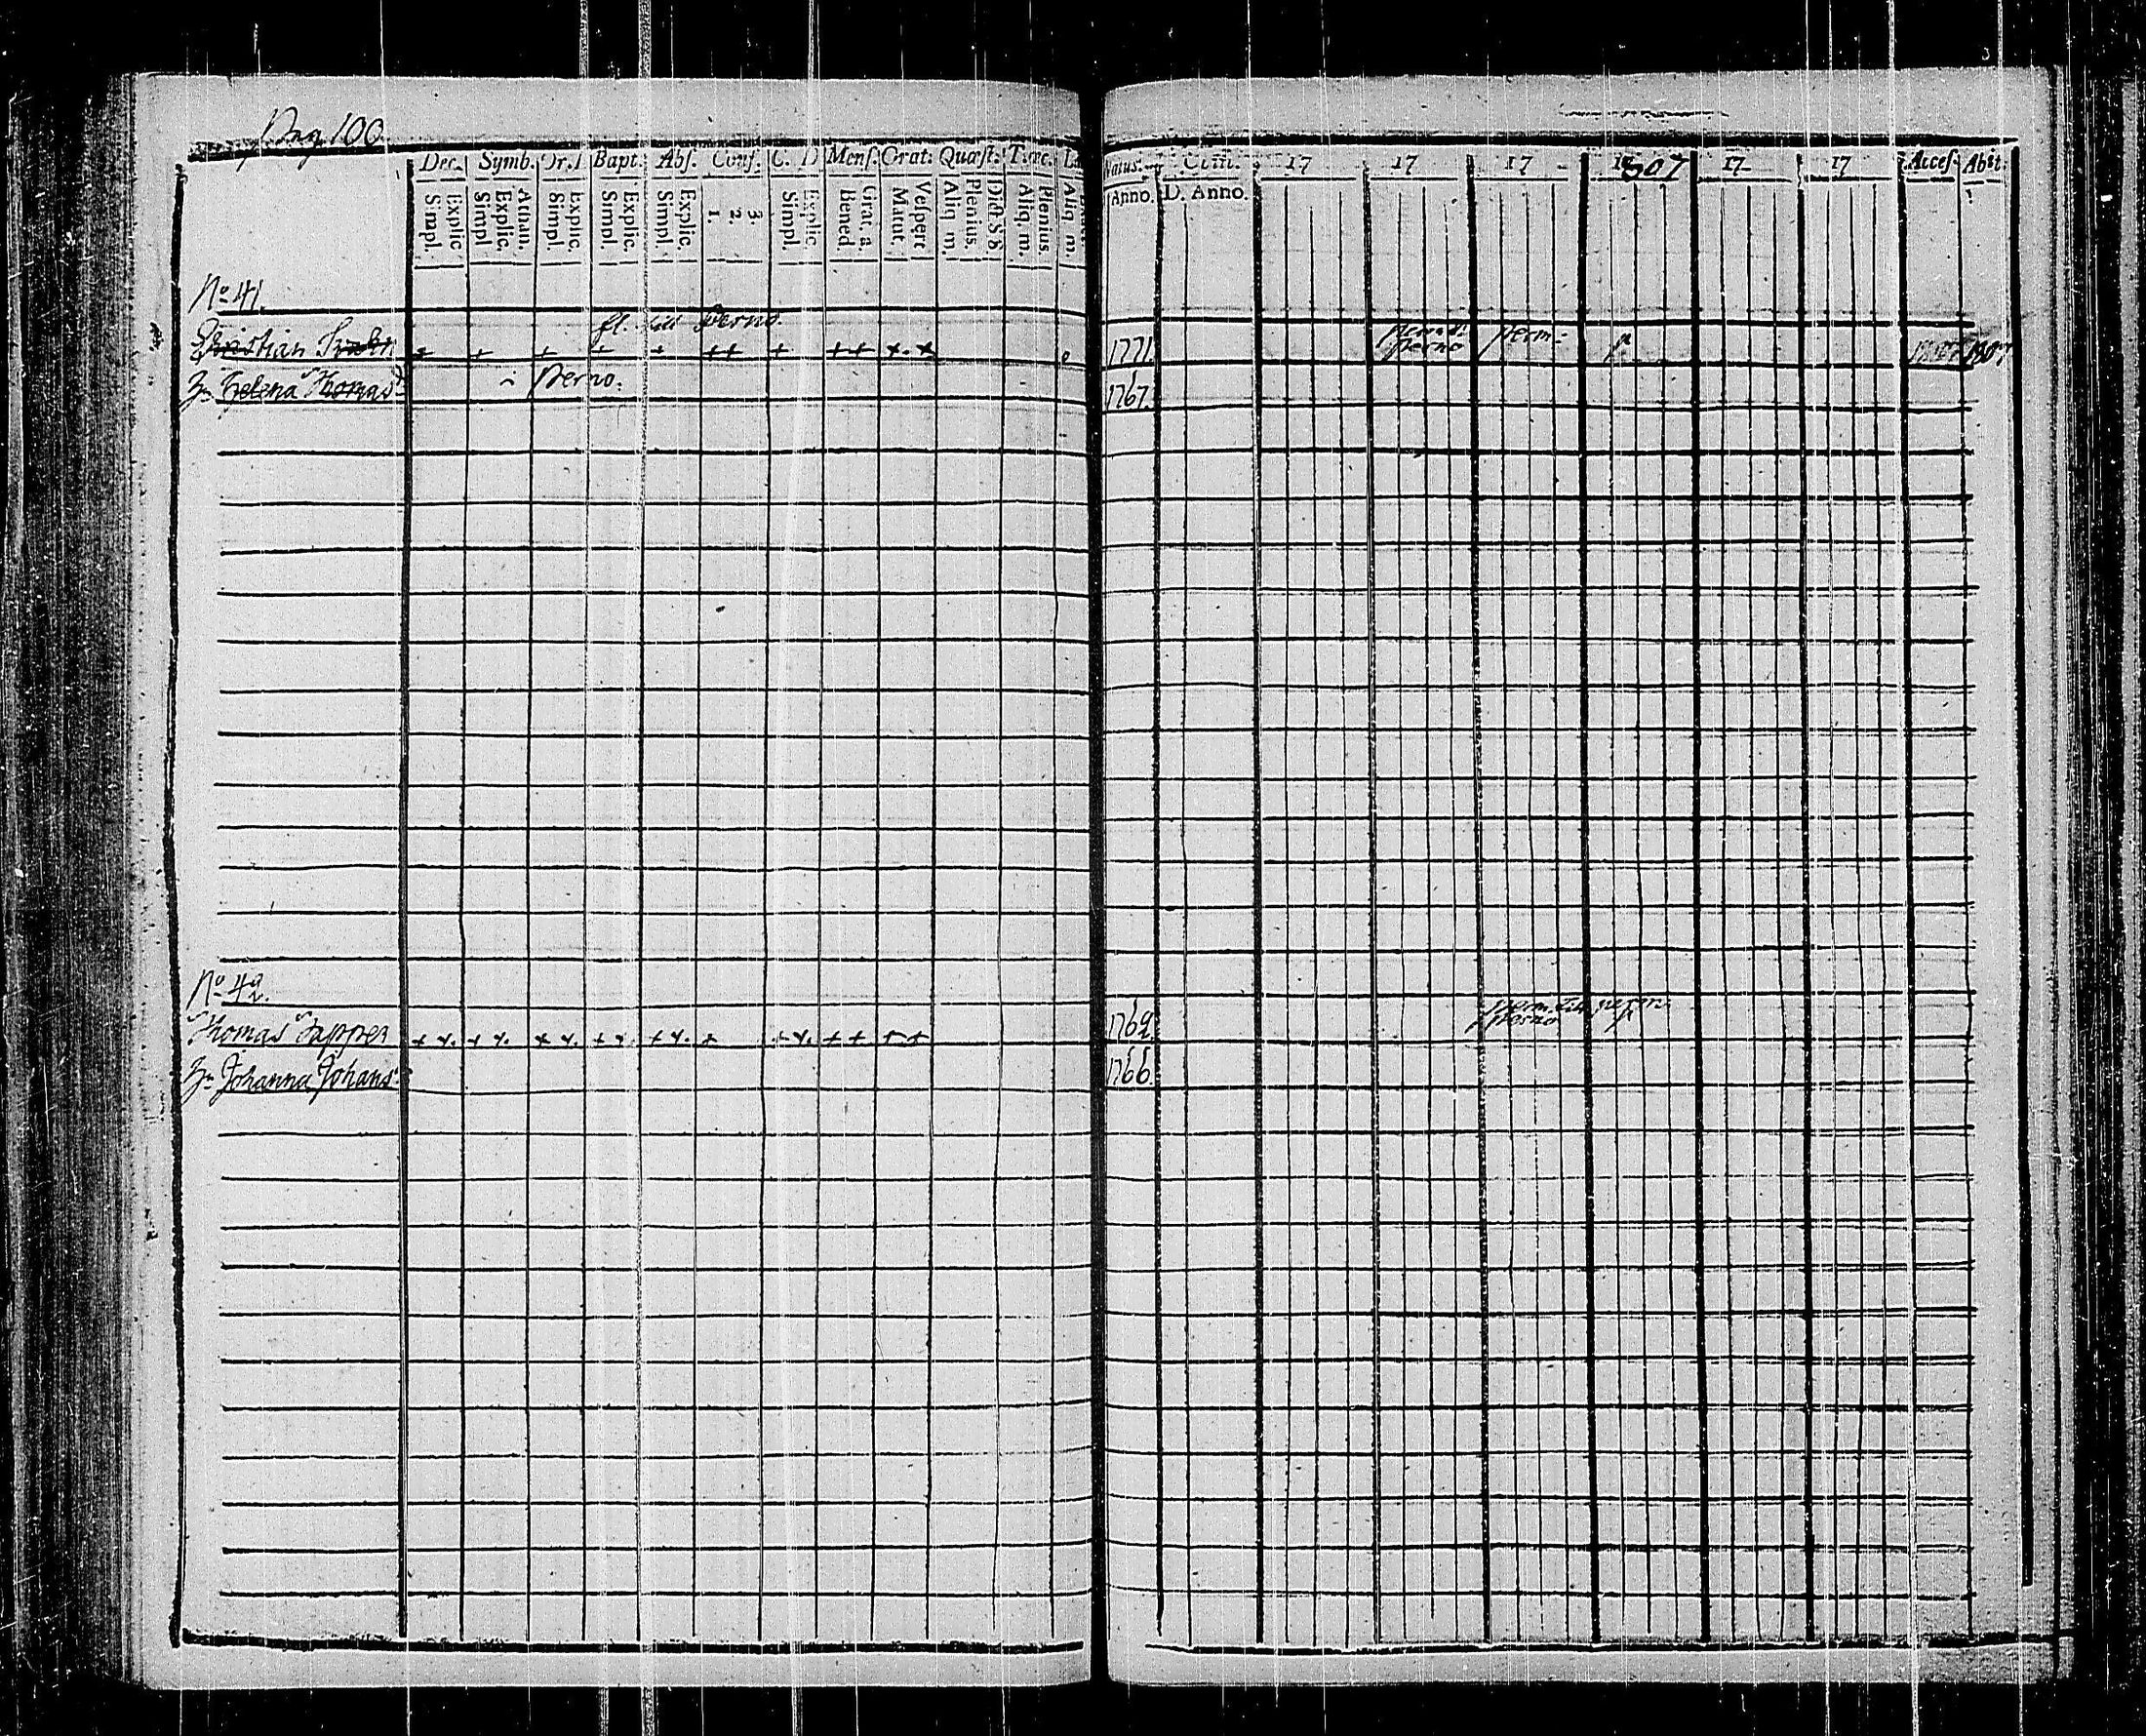 Pag 100
Dec. Symb. Or. D Bapt. Abs. Conf. C. D Mens. Orat: Quæst: T. œc. Natus. Com. 17 17 17 1807 17 17 Acces. Abit.
Simpl. Explic. Simpl Explic. Athan. Simpl. Explic. Simpl. Explic. Simpl. Explic. 1. 2. 3. Simpl. Explic. Bened. Grat. a. Matut. Vespere Aliq m. Plenius. Dict. S. S. Aliq. m. Plenius. Aliq m. Anno. D. Anno.
No 41.
fl. till Perno.
Christian + + + + + ++ + ++ ++ 1771. Perno perm: p. 1807 1807
H. Helena Thomasd: i Perno. 1767.
No 42.
Thomas Tapper + + + + + + + + + + + + + + + + + 1762. Perno
H. Johanna Johans: 1766.